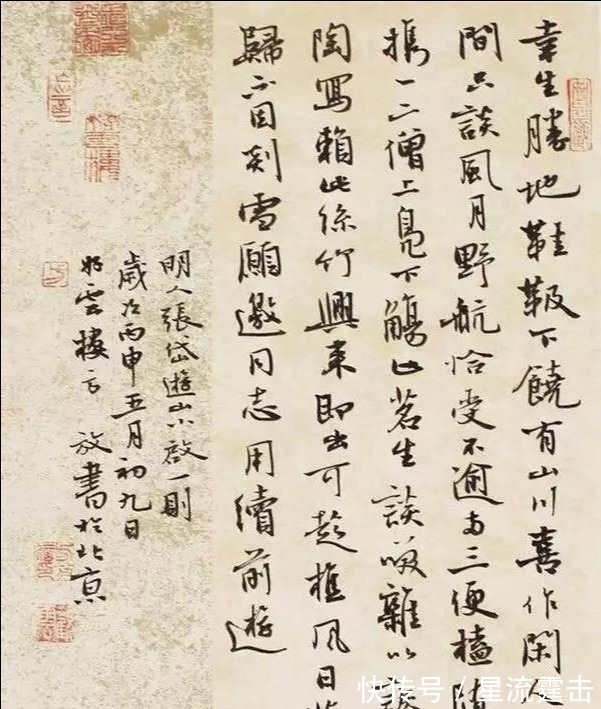 幸生勝地鞋靸下饒有山川喜作閑人
間只談風月野航恰受不逾兩三便榼
攜一二僧上鳧下觴止茗生談笑雜以
陶寫賴此絲竹興來即出可趁樵風日
歸不因剡雪願邀同志用續前遊
明人張岱遊山小啟一則
歲次丙申五月初九日
雲樓方放書於北京
快传号 / 星流霆击